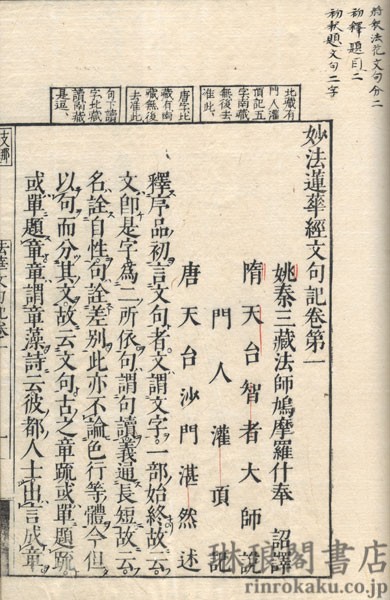 初釈題目二
妙法蓮華經文句記卷第一
姚秦三藏法師鳩摩羅什奉　詔譯
隋天台智者大師說
門人灌頂記
唐天台沙門湛然述
北藏有
門人灌
頂記五
字南藏
無後去
准此、
唐字北
藏有南
藏無後
去准此、
句下讀
字北藏
讀南藏
是逗、
釋序品初言文句者。文謂文字。一部始終故云
文即是字為二所依句謂句讀義通長短故云
名詮自性句詮差別此亦不論色行等體今但
以句而分其文。故云文句古之章疏或單題疏
或單題章章謂章藻詩云彼都人士出言成章
琳琅閣書店
rinrokaku.co.jp